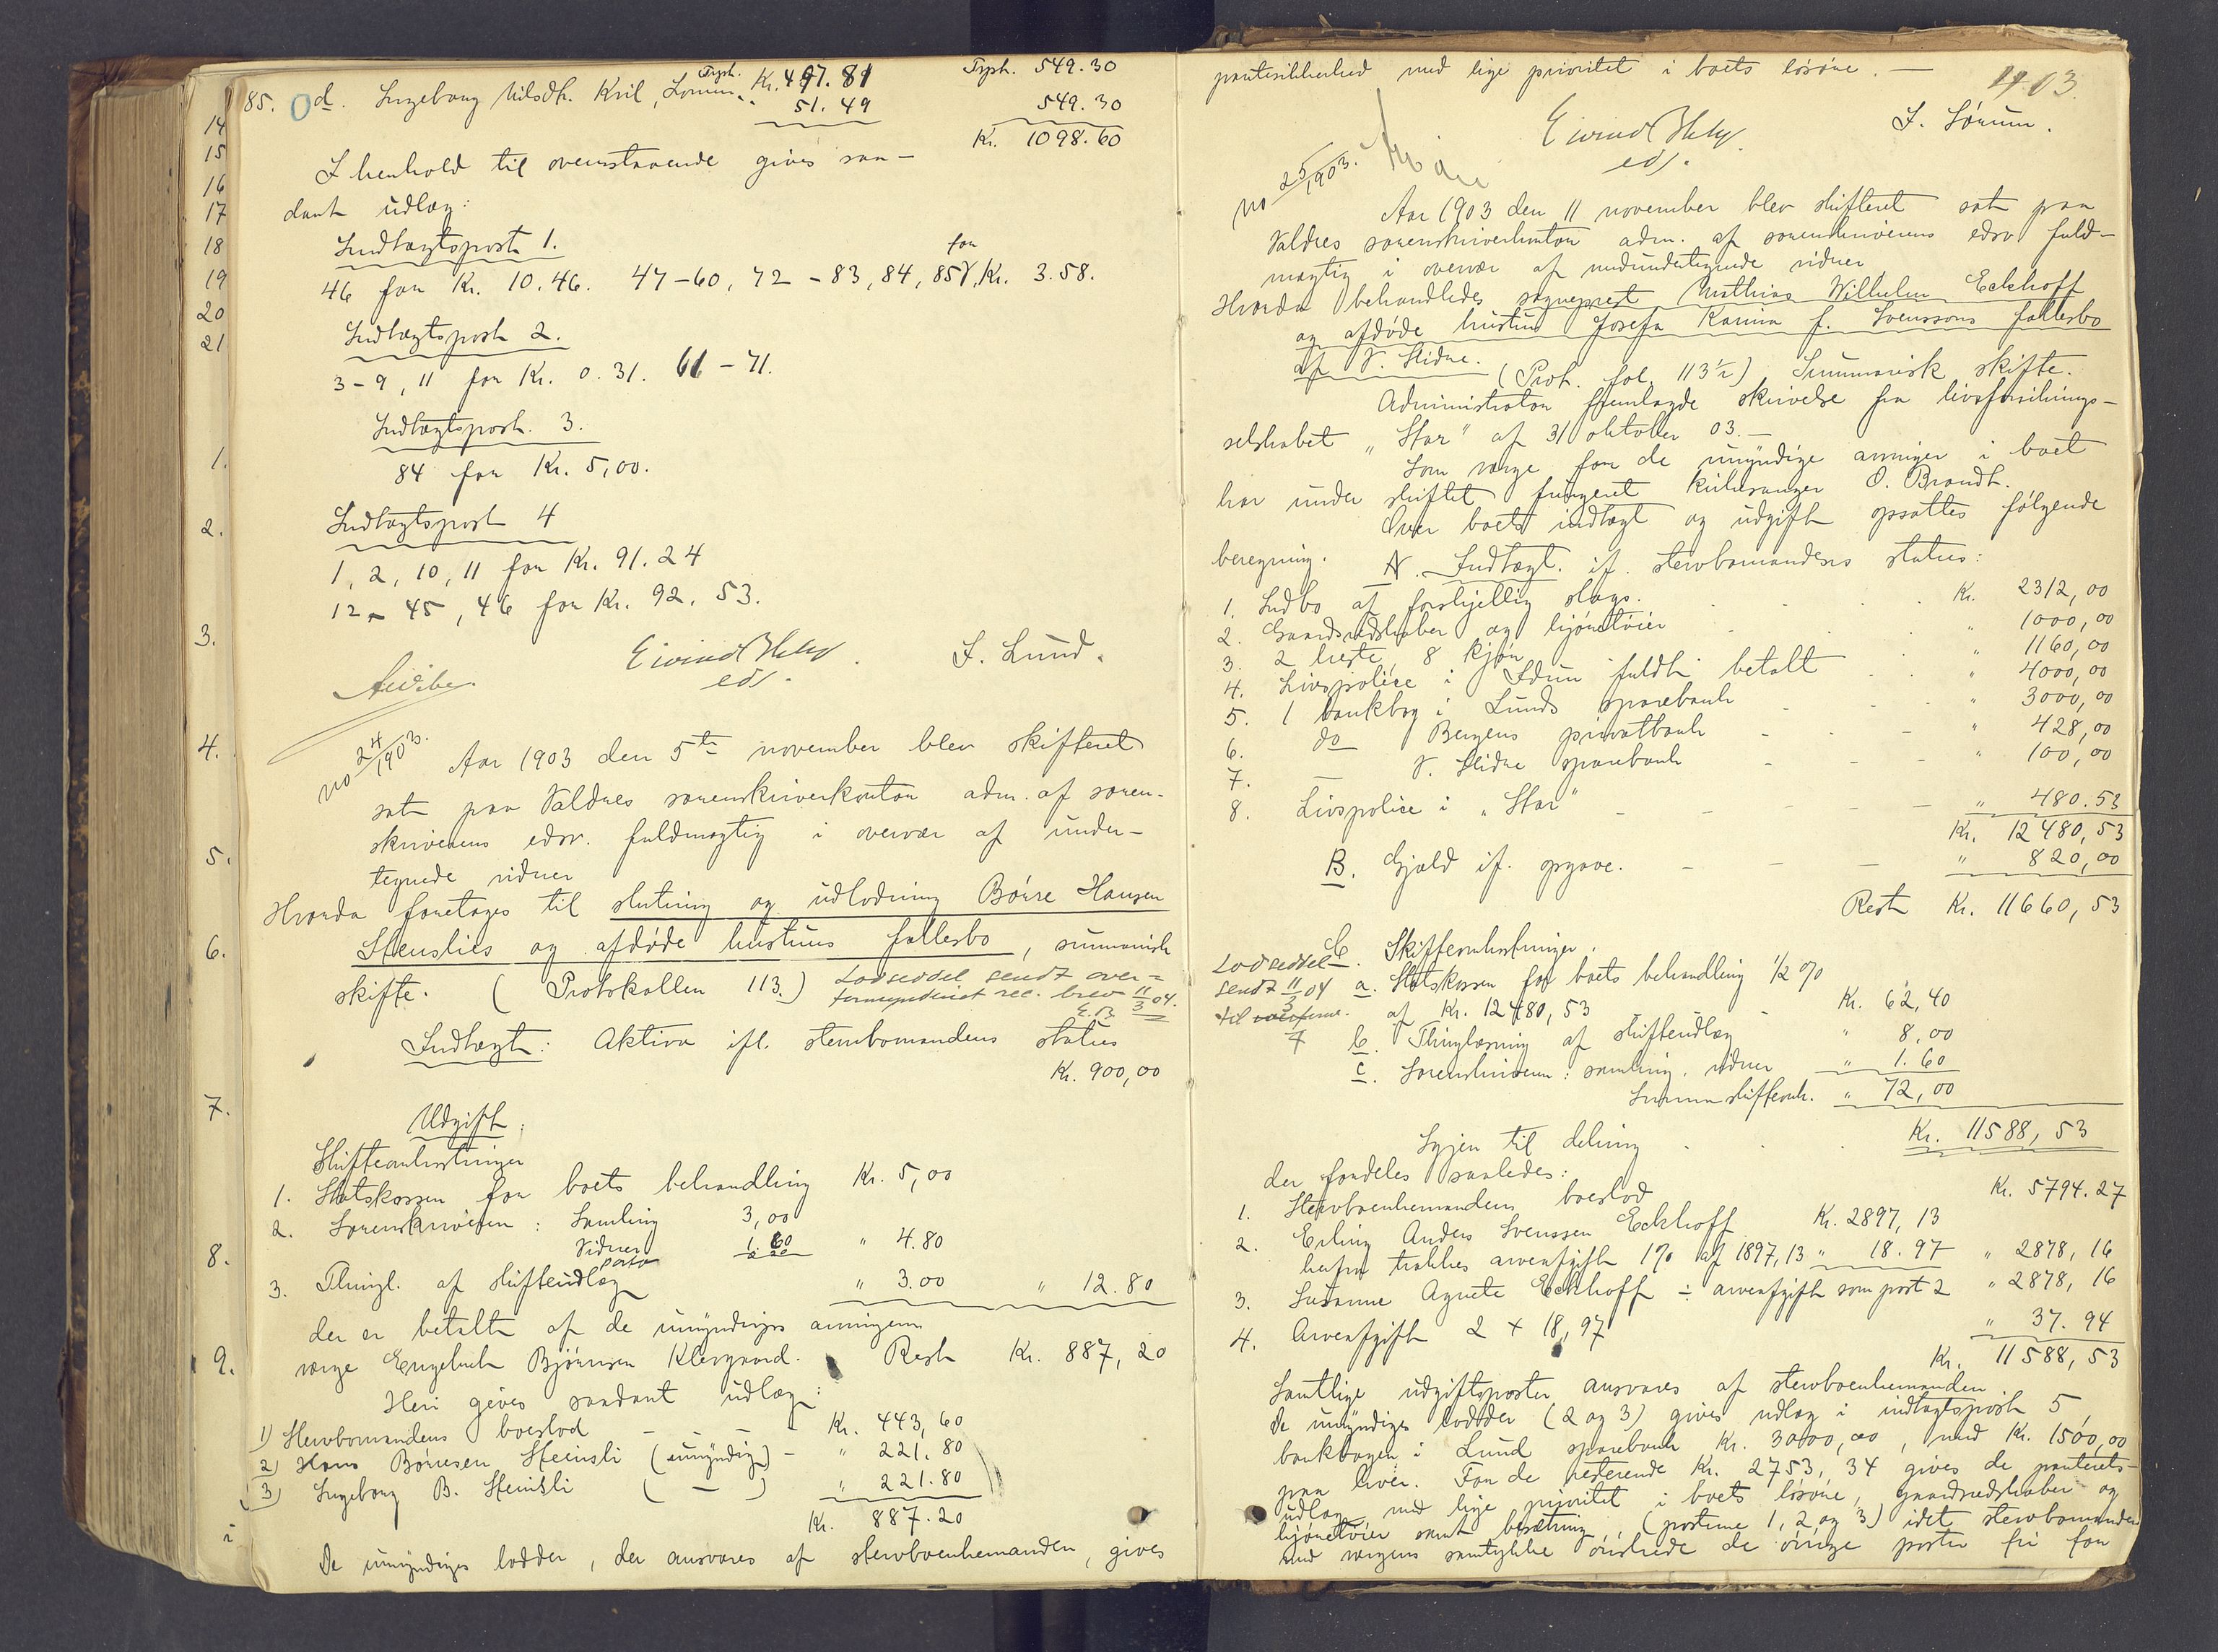 85. d. Ingeborg Nilsdt. Kvil, Transp. Kr. 497.81 Transp. 549.30
51.49 549.30
Kr. 1098.60
I henhold til ovenstaaende gives saa-
dant udlæg:
Indtægtspost 1.
46 for Kr. 10.46. 47-60, 72-83, 84, 85 for Kr. 3.58.
Indtægtspost 2.
3-9, 11 for Kr. 0.31. 61-71.
Indtægtspost. 3.
84 for Kr. 5,00.
Indtægtspost 4
1, 2, 10, 11 for Kr. 91.24
12-45, 46 for Kr. 92.53.
Eivind
eds.
I. Lund.
No 24/1903.
Aar 1903 den 5te november blev skifteret
sat paa Valdres sorenskriverkontor adm. af soren-
skriverens edsv. fuldmægtig i overvær af under-
tegnede vidner
Hvorda foretoges til slutning og udlodning Börre Hansen
Stenslies og afdøde hustrus fællesbo, summarisk
skifte. (Protokollen 113.) Lodseddel sendt over-
formynderiet rec. brev 11/3 04.
E.B
Indtægt: Aktiva ifl. stervbomandens status
Kr. 900,00
Udgift:
Skifteomkostninger
1. Statskassen for boets behandling Kr. 5,00
2. Sorenskriveren: Samling 3,00
Vidner 1.60 " 4.80
porto
3. Thingl. af skifteudlæg " 3.00 " 12.80
der er betalt af de umyndiges arvingers
værge Engebret Björnsen Klevgaard. Rest Kr. 887,20
Heri gives saadant udlæg:
1) Stervbomandens boeslod - - - Kr. 443,60
2) Hans Börresen Steinsli (umyndig) - " 221.80
3) Ingeborg B. Steinsli ( — ) " 221.80
Kr. 887.20
De umyndiges lodder, der ansvares af stervboenkemanden, gives
14
15
16
17
18
19
20
21
1.
2.
3.
4.
5.
6.
7.
8.
9.
pantesikkerhed med lige prioritet i boets lösöre. —
1903.
Eivind
eds.
I. Sörum.
No 25/1903.
Aar 1903 den 11 november blev skifteret sat paa
Valdres sorenskriverkontor adm. af sorenskriverens edsv. fuld-
mægtig i overvær af medundertegnede vidner
Hvorda behandledes sogneprest Mathias Wilhelm Eckhoff
og afdøde hustru Josefa Karina f. Svenssons fællesbo
af V. Slidre. (Prot. fol. 113½) Summarisk skifte.
Administrator fremlagde skrivelse fra livsforsikrings-
selskabet "Star" af 31 oktober 03.—
Som værge for de umyndige arvinger i boet
har under skiftet fungeret kirkesanger O. Brandt.
Over boets indtægt og udgift opsattes følgende
beregning.
A. Indtægt. if. stervbomandens status:
1. Indbo af forskjellig slags. Kr. 2312,00
2. Gaardsredskaber og kjöretöier " 1000,00
3. 2 heste, 8 kjör " 1160,00
4. Livspolice i Idun fuldt betalt " 4000,00
5. 1 bankbog i Lunds sparebank " 3000,00
6. do Bergens privatbank " 428,00
7. — V. Slidre sparebank " 100,00
8. Livspolice i "Star" " 480.53
Kr. 12480,53
B. Gjæld if. opgave. " 820,00
Rest Kr. 11660,53
C. Skifteomkostninger.
Lodseddel
sendt 11/3 04
til
a. Statskassen for boets behandling 1/2 %
af Kr. 12480,53 Kr. 62,40
b. Thinglæsning af skifteudlæg " 8,00
c. Sorenskriveren: samling. vidner " 1.60
Summa skifteomk. " 72,00
Igjen til deling Kr. 11588,53
der fordeles saaledes:
1. Stervboenkemandens boeslod Kr. 5794.27
2. Erling Anders Svenssen Eckhoff Kr. 2897,13
herfra trækkes arveafgift 1% af 1897,13 " 18.97 " 2878,16
3. Susanne Agnete Eckhoff ÷ arveafgift som post 2 " 2878,16
4. Arveafgift 2 x 18,97 " 37.94
Kr. 11588,53
Samtlige udgiftsposter ansvares af stervboenkemanden
De umyndiges lodder (2 og 3) gives udlæg i indtægtspost 5,
bankbogen i Lund sparebank Kr. 3000,00, med Kr. 1500,00
paa hver. For de resterende Kr. 2753,34 gives de panterets-
udlæg med lige prioritet i boets lösöre, gaardsredskaber og
kjöretöier samt besætning, (posterne 1, 2 og 3) idet stervbomanden
med værgens samtykke önskede de övrige poster fri for